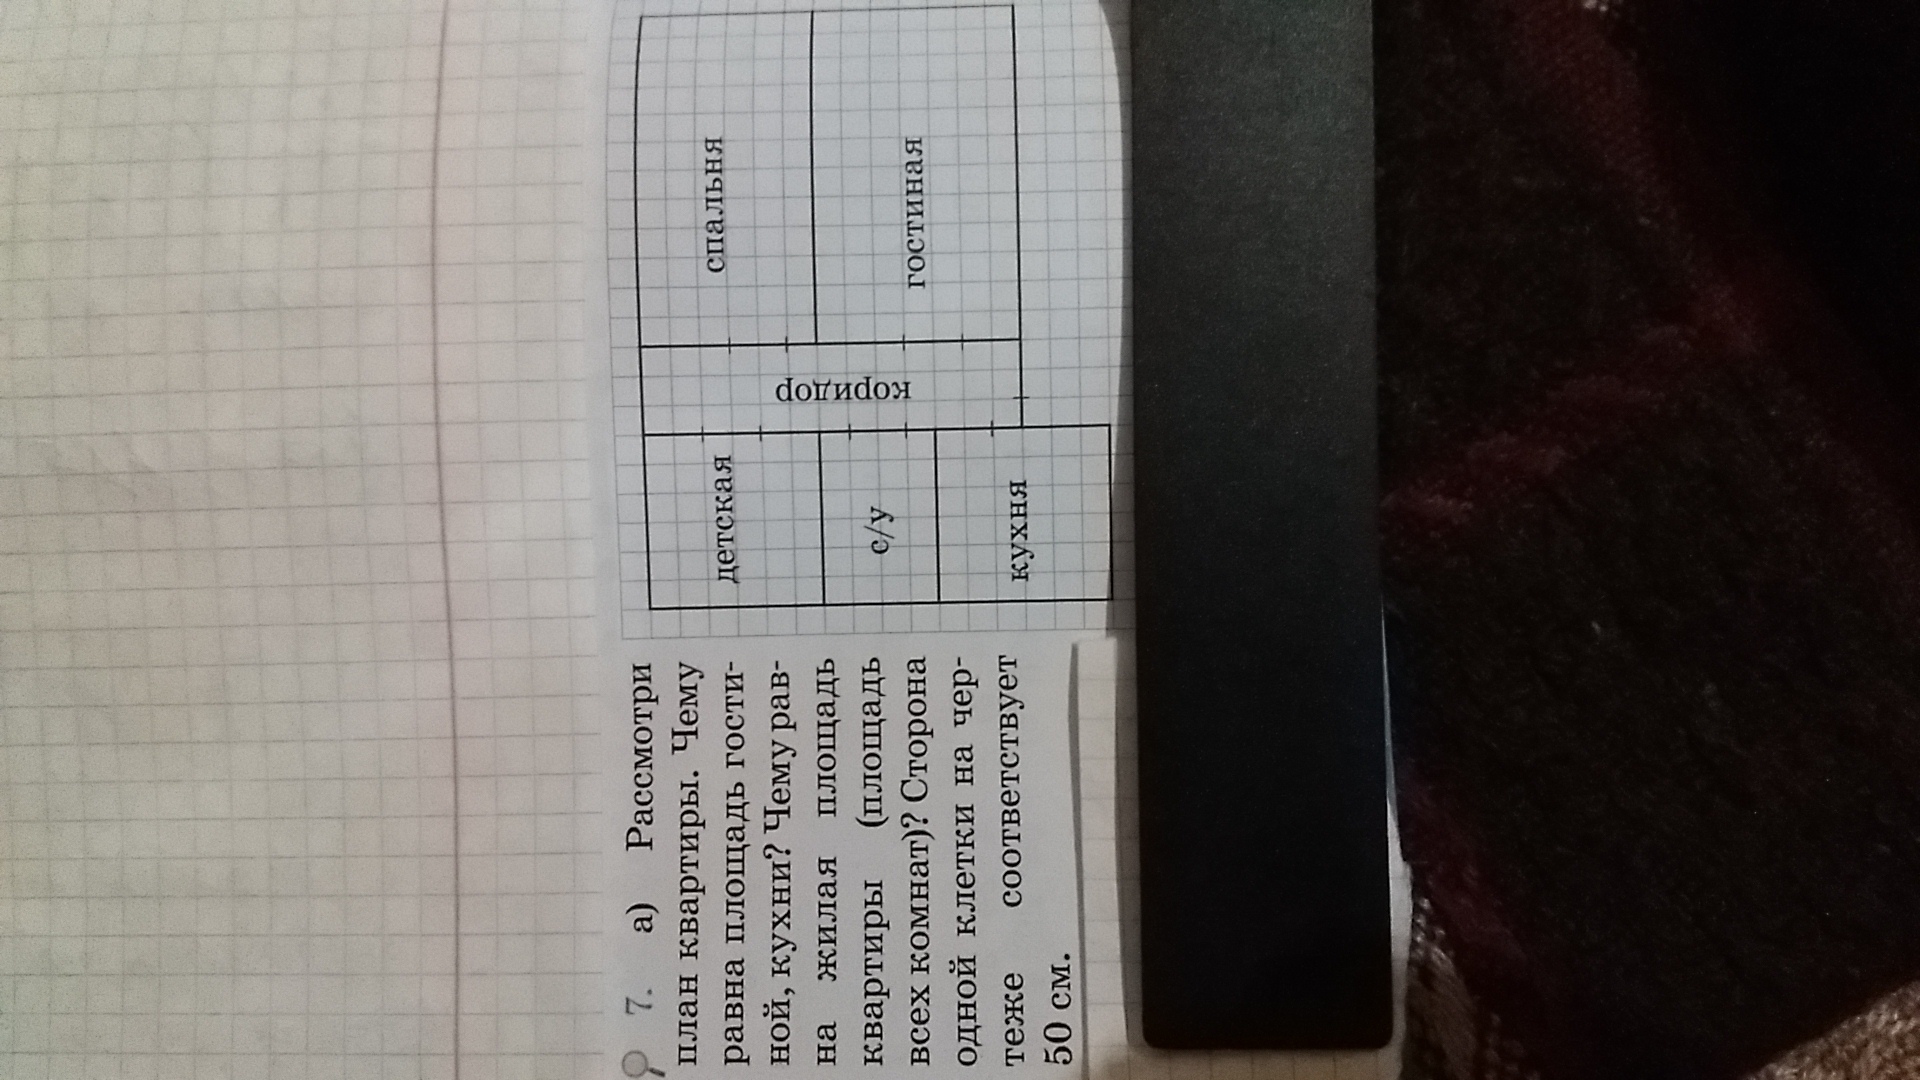 7. а) Рассмотри
план квартиры. Чему
равна площадь гости-
ной, кухни? Чему рав-
на жилая площадь
квартиры (площадь
всех комнат)? Сторона
одной клетки на чер-
теже соответствует
50 см.
детская
спальня
коридор
с/у
гостиная
кухня